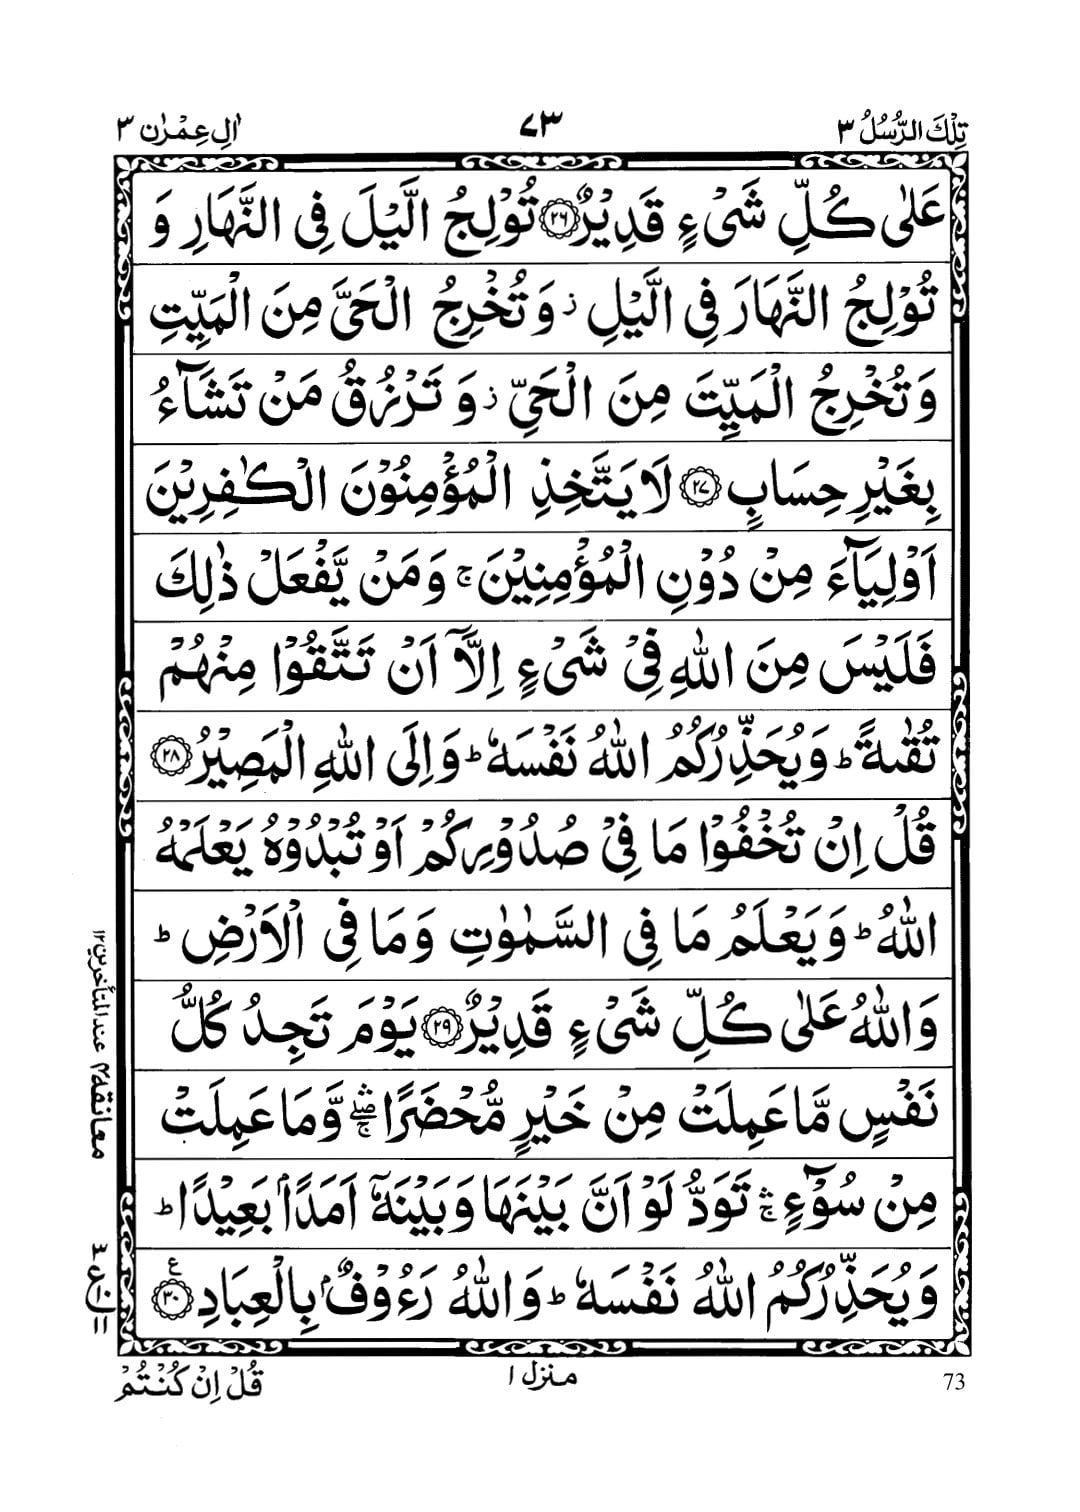 تِلْكَ الرُّسُلُ ٣
٧٣
اٰلِ عِمْرٰن ٣
عَلٰى كُلِّ شَىْءٍ قَدِيْرٌ ﴿٢٦﴾ تُوْلِجُ الَّيْلَ فِى النَّهَارِ وَ
تُوْلِجُ النَّهَارَ فِى الَّيْلِ ز وَتُخْرِجُ الْحَىَّ مِنَ الْمَيِّتِ
وَتُخْرِجُ الْمَيِّتَ مِنَ الْحَىِّ ز وَ تَرْزُقُ مَنْ تَشَآءُ
بِغَيْرِ حِسَابٍ ﴿٢٧﴾ لَا يَتَّخِذِ الْمُؤْمِنُوْنَ الْكٰفِرِيْنَ
اَوْلِيَآءَ مِنْ دُوْنِ الْمُؤْمِنِيْنَ ۚ وَمَنْ يَّفْعَلْ ذٰلِكَ
فَلَيْسَ مِنَ اللهِ فِىْ شَىْءٍ اِلَّآ اَنْ تَتَّقُوْا مِنْهُمْ
تُقٰىةً ؕ وَيُحَذِّرُكُمُ اللهُ نَفْسَهٗ ؕ وَاِلَى اللهِ الْمَصِيْرُ ﴿٢٨﴾
قُلْ اِنْ تُخْفُوْا مَا فِىْ صُدُوْرِكُمْ اَوْ تُبْدُوْهُ يَعْلَمْهُ
اللهُ ؕ وَيَعْلَمُ مَا فِى السَّمٰوٰتِ وَمَا فِى الْاَرْضِ ؕ
وَاللهُ عَلٰى كُلِّ شَىْءٍ قَدِيْرٌ ﴿٢٩﴾ يَوْمَ تَجِدُ كُلُّ
نَفْسٍ مَّا عَمِلَتْ مِنْ خَيْرٍ مُّحْضَرًا ۛۖۚ وَّمَا عَمِلَتْ
مِنْ سُوْٓءٍ ۛۚ تَوَدُّ لَوْ اَنَّ بَيْنَهَا وَبَيْنَهٗۤ اَمَدًاۢ بَعِيْدًا ؕ
وَيُحَذِّرُكُمُ اللهُ نَفْسَهٗ ؕ وَاللهُ رَءُوْفٌۢ بِالْعِبَادِ ﴿٣٠﴾ ع
معانقة ٢ عند المتأخرين ١٢
٣
ع ١٠
١١
قُلْ اِنْ كُنْتُمْ
منزل ١
73